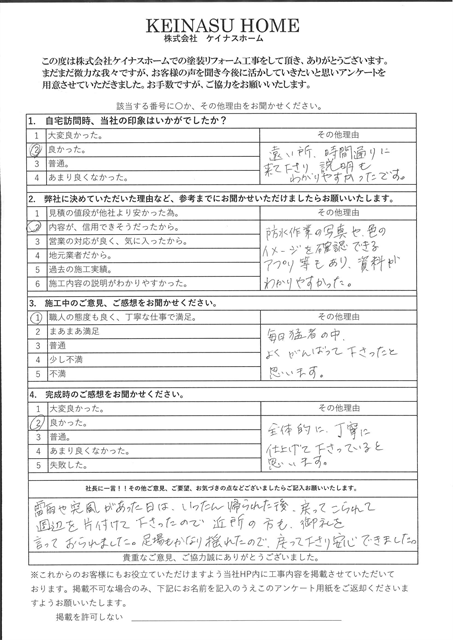 KEINASU HOME
株式会社　ケイナスホーム
この度は株式会社ケイナスホームでの塗装リフォーム工事をして頂き、ありがとうございます。
まだまだ微力な我々ですが、お客様の声を聞き今後に活かしていきたいと思いアンケートを
用意させていただきました。お手数ですが、ご協力をお願いいたします。
該当する番号に○か、その他理由をお聞かせください。
1. 自宅訪問時、当社の印象はいかがでしたか？
1 大変良かった。
2 良かった。
3 普通。
4 あまり良くなかった。
その他理由
遠い所、時間通りに
来て下さり、説明も
わかりやすかったです。
2. 弊社に決めていただいた理由など、参考までにお聞かせいただけましたらお願いいたします。
1 見積の値段が他社より安かった為。
2 内容が、信用できそうだったから。
3 営業の対応が良く、気に入ったから。
4 地元業者だから。
5 過去の施工実績。
6 施工内容の説明がわかりやすかった。
その他理由
防水作業の写真や、色の
イメージを確認できる
アプリ等もあり、資料が
わかりやすかった。
3. 施工中のご意見、ご感想をお聞かせください。
1 職人の態度も良く、丁寧な仕事で満足。
2 まあまあ満足
3 普通
4 少し不満
5 不満
その他理由
毎日猛暑の中、
よくがんばって下さったと
思います。
4. 完成時のご感想をお聞かせください。
1 大変良かった。
2 良かった。
3 普通。
4 あまり良くなかった。
5 失敗した。
その他理由
全体的に、丁寧に
仕上げて下さっていると
思います。
社長に一言！！その他ご意見、ご要望、お気づきの点などございましたらご記入お願いいたします。
雷雨や突風があった日は、いったん帰られた後、戻ってこられて
周辺を片付けて下さったので近所の方も、御礼を
言っておられました。足場もかなり揺れたので、戻って下さり安心できました。
貴重なご意見、ご協力誠にありがとうございました。
※これからのお客様にもお役立ていただけますよう当社HP内に工事内容を掲載させていただいて
おります。掲載不可な場合のみ、下記にお名前を記入のうえこのアンケート用紙をご返却くださいま
すようお願いいたします。
掲載を許可しない